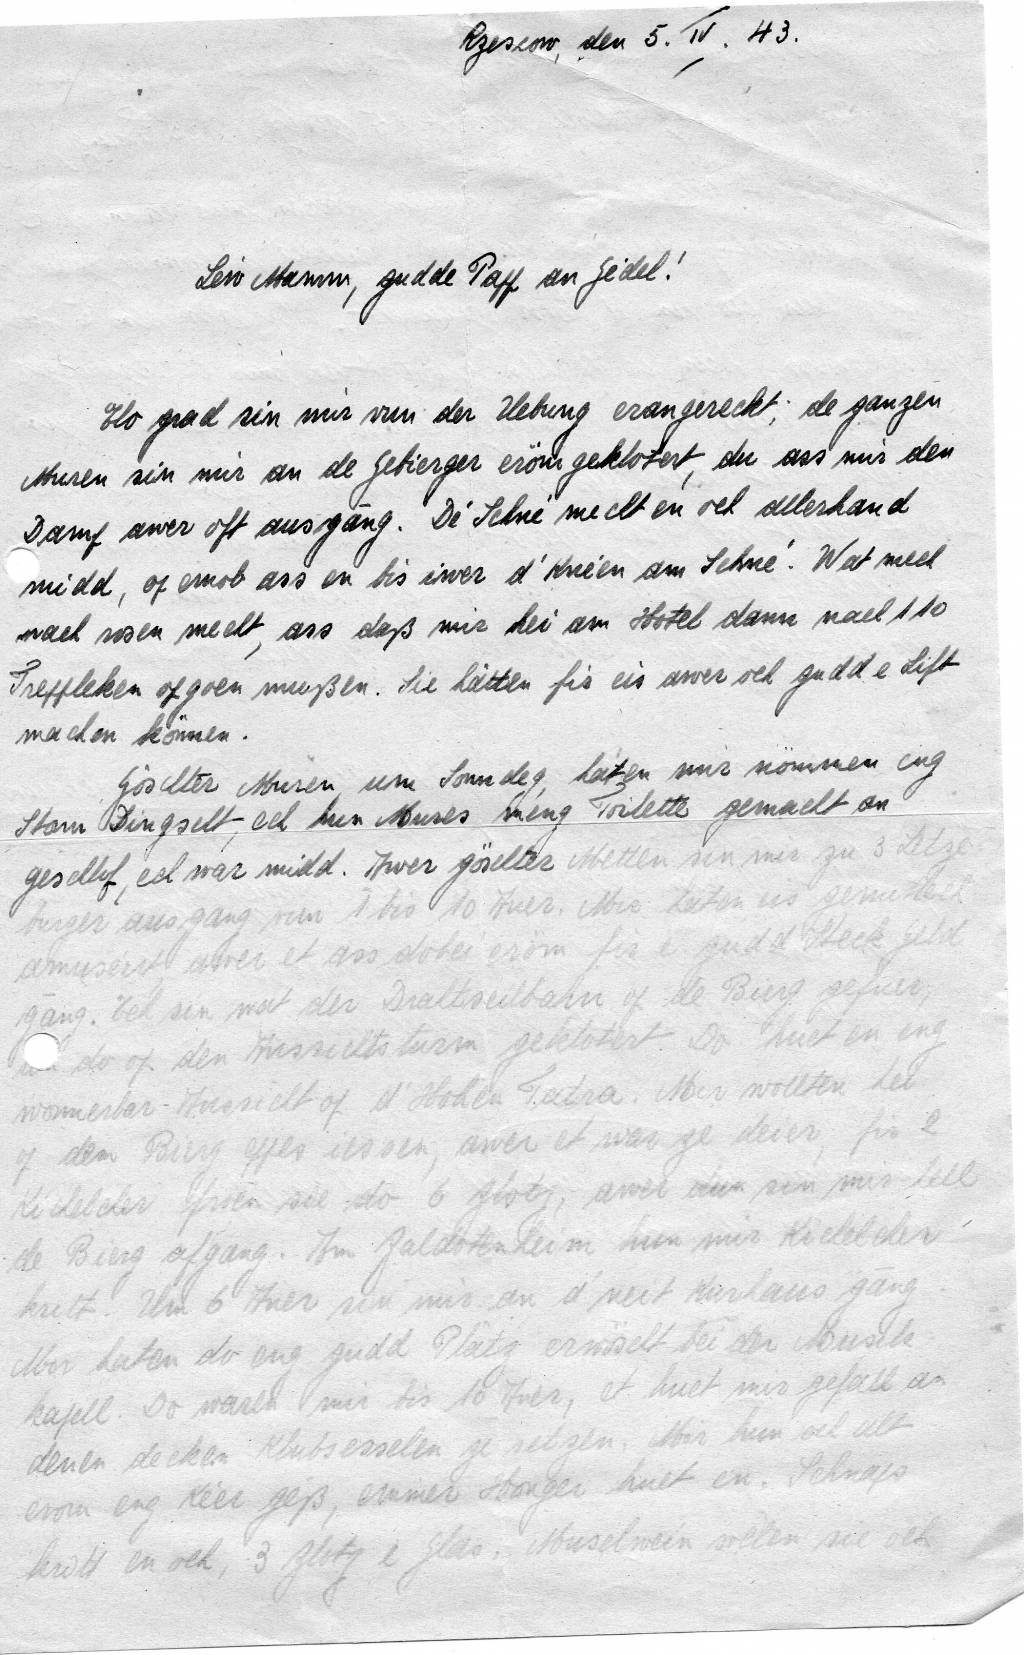 Rzeszow, den 5. IV. 43.
Léiw Mamm, gudde Papp an Geidel!
Elo grad sin mir vun der Uebung erangereckt; de ganzen
Muren sin mir an de Gebierger eröm geklotert, du ass mir den
Damf awer oft ausgäng. De' Schné mecht en och allerhand
midd, op emob ass en bis iwer d' Knéen am Schné. Wat mech
nach rosen mecht, ass daß mir hei am Hotel dann nach 110
Treffleken opgoen mußen. Sie hätten fir eis awer och gudd e Lift
machen können.
Göschter Muren, um Sonndeg, häten mir nömmen eng
Stonn Dingscht, ech hun Mures meng Toilette gemacht an
geschlof, ech war midd. Awer göschter Metten sin mir zu 3 Letze
burger ausgang vun 1 bis 10 Auer. Mir haten eis gemittlech
amuséert awer et ass dobei eröm fir e gudd Steck Geld
gäng. Ech sin mat der Drahtseilbarn op de Bierg gefuer,
do op den Aussichtsturm geklotert. Do huet en eng
wonnerbar Aussicht op d' Hohen Tatra. Mir wollten hei
op dem Bierg eppes iessen, awer et war ze deier, fir 2
Kichelcher froen sie do 6 Zloty, awer dun sin mir hell
de Bierg ofgang. Am Zaldotenheim hun mir Kichelcher
kritt. Um 6 Auer sin mir an d' neit Kurhaus gäng.
Mir haten do eng gudd Plätz erwöscht bei der Musek
kapell. Do waren mir bis 10 Auer, et huet mir gefall an
denen decken Klubsesselen ze setzen. Mir hun och alt
erom eng Kéer geß, emmer Honger huet en. Schnaps
kritt en och, 3 Zloty e Glas. Muselwein sollen sie och